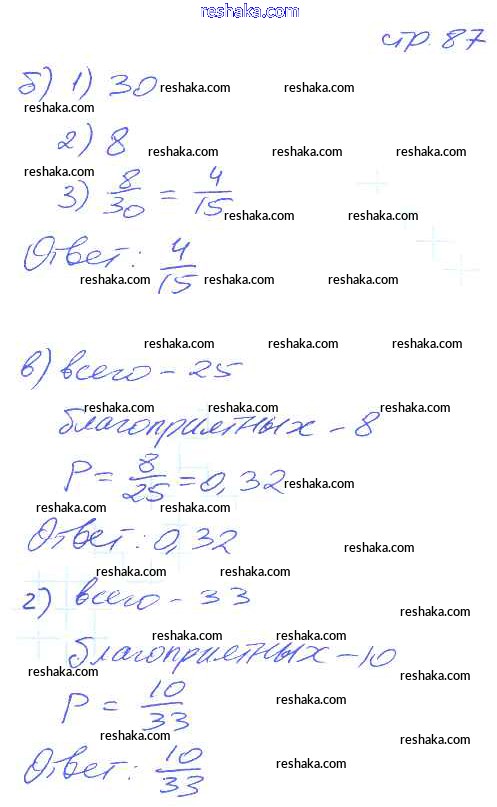 reshaka.com
стр. 87
б) 1) 30 reshaka.com reshaka.com reshaka.com
reshaka.com
2) 8 reshaka.com reshaka.com reshaka.com
reshaka.com
3) 8/30 = 4/15
reshaka.com reshaka.com
Ответ: 4/15
reshaka.com reshaka.com reshaka.com reshaka.com
reshaka.com reshaka.com reshaka.com
в) всего - 25
reshaka.com reshaka.com reshaka.com
благоприятных - 8
P = 8/25 = 0,32 reshaka.com
reshaka.com reshaka.com
Ответ: 0,32 reshaka.com
reshaka.com reshaka.com
г) всего - 33
reshaka.com
reshaka.com reshaka.com
благоприятных - 10
reshaka.com reshaka.com
P = 10/33 reshaka.com
reshaka.com reshaka.com
Ответ: 10/33 reshaka.com
reshaka.com